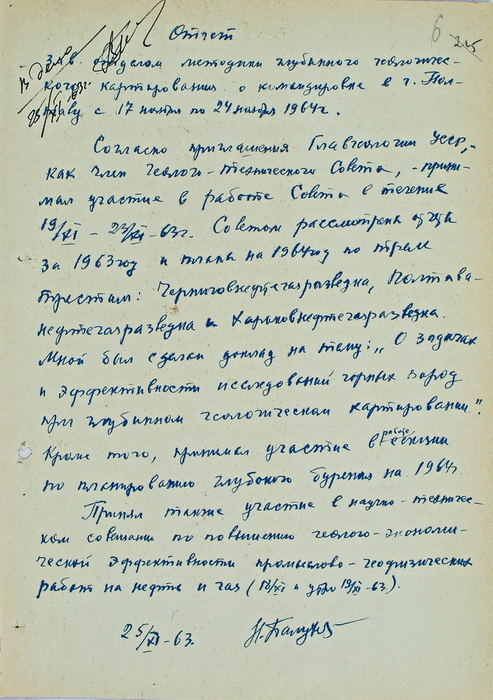 6
245
В дело
25/XI-63г.
Отчет
Зав. отделом методики глубинного геологичес-
кого картирования о командировке в г. Пол-
таву с 17 ноября по 24 ноября 1964г.
Согласно приглашения Главгеологии УССР,-
как член Геолого-технического Совета, - прини-
мал участие в работе Совета в течение
19/XI - 23/XI-63г. Советом рассмотрены отчеты
за 1963 год и планы на 1964 год по трем
трестам: Черниговнефтегазразведка, Полтава-
нефтегазразведка и Харьковнефтегазразведка.
Мной был сделан доклад на тему: „О задачах
и эффективности исследований горных пород
при глубинном геологическом картировании".
Кроме того, принимал участие в работе секции
по планированию глубокого бурения на 1964г.
Принял также участие в научно-техничес-
ком совещании по повышению геолого-экономи-
ческой эффективности промыслово-геофизических
работ на нефть и газ (18/XI и утро 19/XI-63.).
25/XI-63.